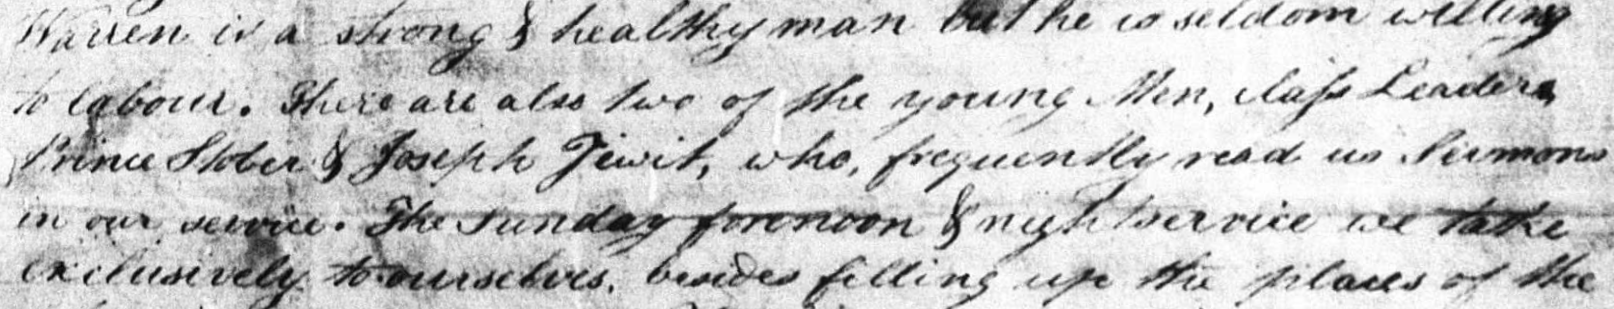 Warren is a strong & healthy man but he is seldom willing
to labour. There are also two of the young Men, class Leaders,
Prince Stober & Joseph Jewit, who, frequently read us Sermons
in our service. The Sunday forenoon & night service we take
exclusively to ourselves, besides filling up the places of the